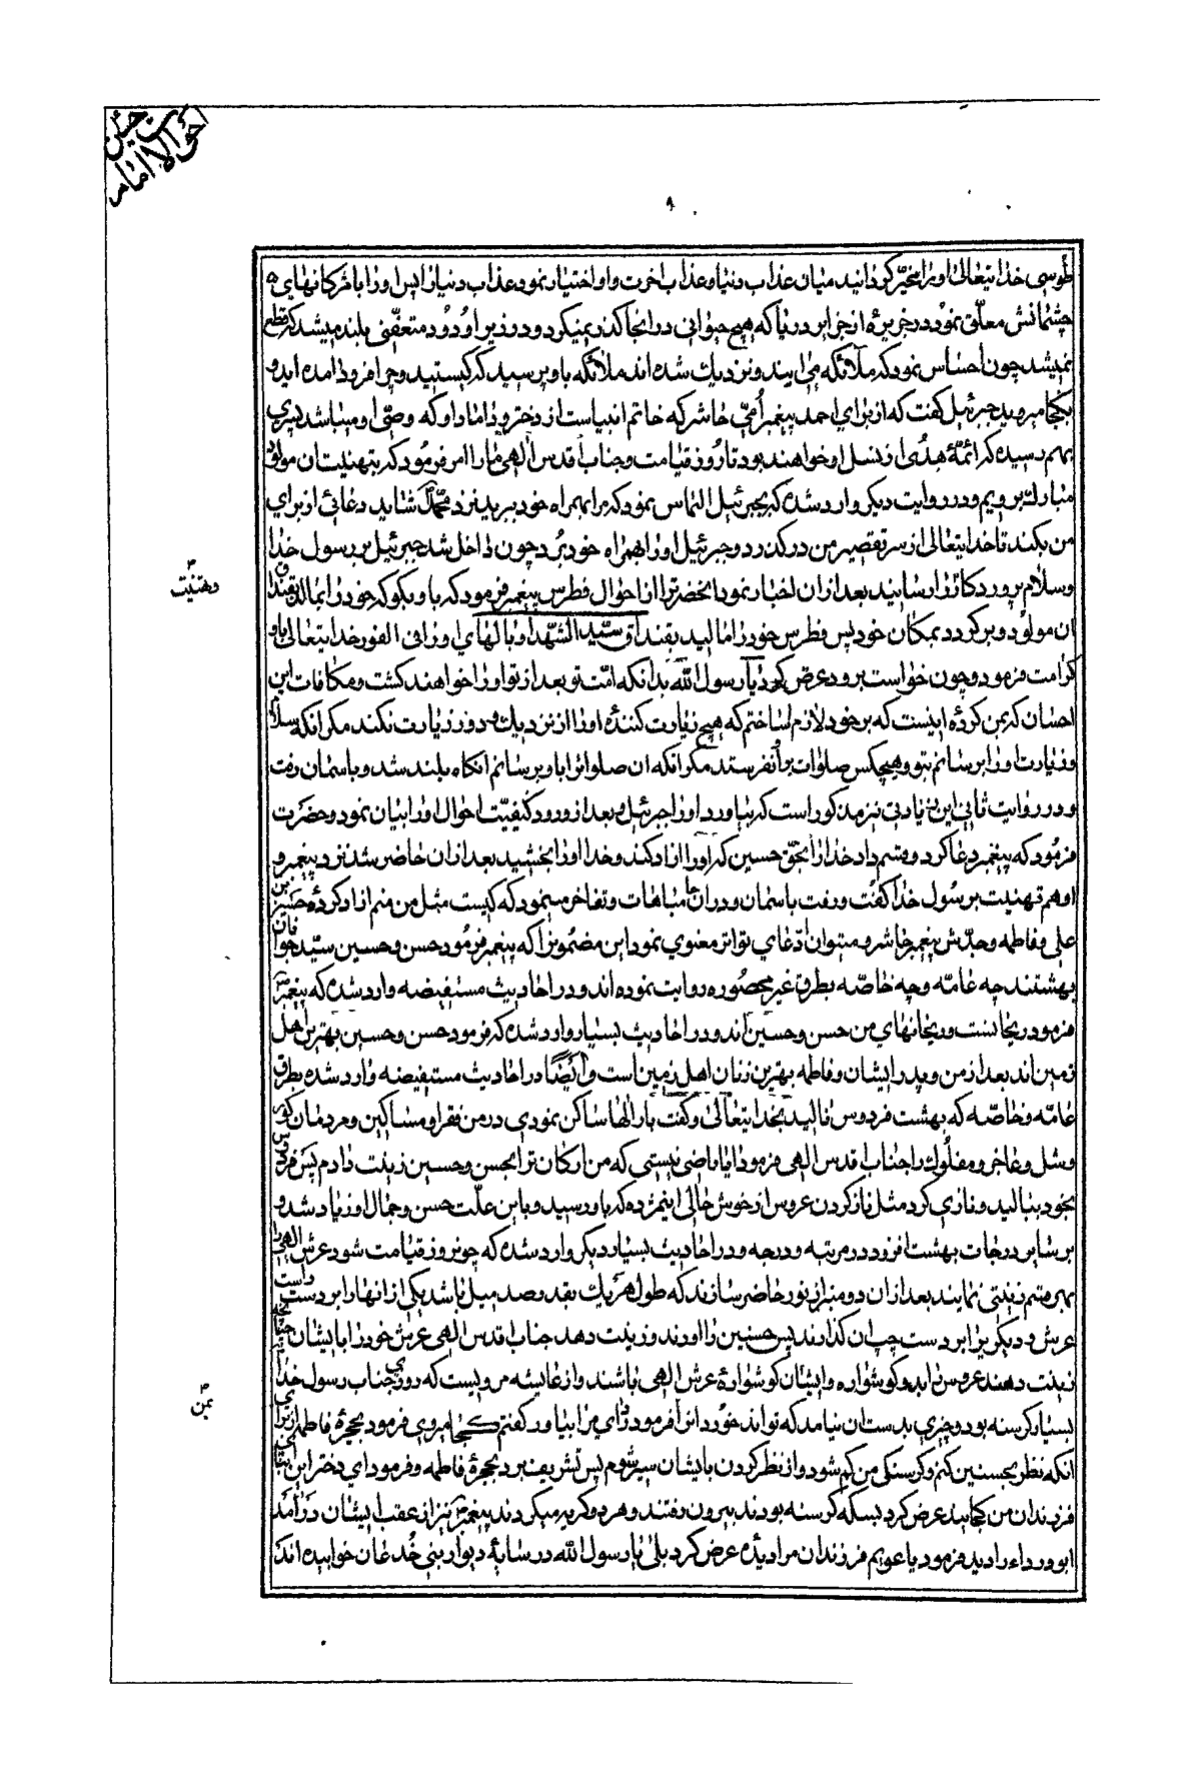 احوالات امام حسین
طوسی خدایتعالی اورا مخیر کردانید میان عذاب دنیا و عذاب اخرت و او اختیار نمود عذاب دنیا را پس اورا با مژکانهای
چشمانش معلق نمود در جزیرهٔ از جزایر دریا که هیچ حیوانی در انجا کذر نمیکرد و در زیر او دود متعفنی بلند میشد که قطع
نمیشد چون احساس نمود که ملائکه می ایند و نزدیك شده اند ملائکه باو پرسید که کیستید و چرا فرود امده اید و
بکجا میروید جبرئیل کفت که از برای احمد پیغمبر امی حاشر که خاتم انبیاست از دختر و داماد او که وصی او میباشد پسری
بهم رسیده که ائمهٔ هدی از نسل او خواهند بود تا روز قیامت و جناب اقدس الهی مارا امر فرمود که بتهنیت ان مولود
مبارك برویم و در روایت دیکر وارد شده که بجبرئیل التماس نمود که مرا بهمراه خود ببرید نزد محمد شاید دعائی از برای
من بکند تا خدایتعالی از سر تقصیر من درکذرد و جبرئیل اورا بهمراه خود برد چون داخل شد جبرئیل بر رسول خدا
و تهنیت
وسلام پروردکار را رسانید بعد از ان اخبار نمود انحضرترا از احوال فطرس پیغمبر فرمود که باو بکو که خود را بمالد بقنداق
ان مولود و برکردد بمکان خود پس فطرس خود را مالید بقنداق سید الشهدا و بالهای اورا فی الفور خدایتعالی باو
کرامت فرمود و چون خواست برود عرض کرد یا رسول الله بدانکه امت تو بعد از تو اورا خواهند کشت و مکافات این
احسان که بمن کرده اینست که بر خود لازم ساختم که هیچ زیارت کنندهٔ اورا از نزدیك و دور زیارت نکند مکر انکه سلام
و زیارت اورا برسانم بتو و هیچکس صلوات بر او نفرستد مکر انکه ان صلواترا باو برسانم انکاه بلند شد و باسمان رفت
و در روایت ثانی این زیادتی نیز مذکور است که بیاورد اورا جبرئیل و بعد از ورود کیفیت احوال اورا بیان نمود و حضرت
فرمود که پیغمبر دعا کرد و قسم داد خدا را بحق حسین که اورا ازاد کند و خدا اورا بخشید بعد از ان حاضر شد نزد پیغمبر و
او هم تهنیت بر رسول خدا کفت و رفت باسمان و در ان جا مباهات و تفاخر مینمود که کیست مثل من منم ازاد کردهٔ حسین بن
علی و فاطمه و جدش پیغمبر حاشر و میتوان ادعای تواتر معنوی نمود این مضمونرا که پیغمبر فرمود حسن و حسین سید جوانان
بهشتند چه عامه و چه خاصه بطرق غیر محصوره روایت نموده اند و در احادیث مستفیضه وارد شده که پیغمبر
فرمود ریحانست و ریحانهای من حسن و حسین اند و در احادیث بسیار وارد شده که فرمود حسن و حسین بهترین اهل
زمین اند بعد از من و پدر ایشان و فاطمه بهترین زنان اهل زمین است و ایضا در احادیث مستفیضه وارد شده بطرق
عامه و خاصه که بهشت فردوس نالید بخدایتعالی و کفت بار الها ساکن نمودی در من فقرا و مساکین و مردمان کور
و شل و عاجز و مفلوك را جناب اقدس الهی فرمود ایا راضی نیستی که من ارکان ترا بحسن و حسین زینت دادم پس فردوس
بخود ببالید و نازی کرد مثل ناز کردن عروس از خوش حالی اینمژده که باو رسید و باین علت حسن و جمال او زیاد شد و
بر سایر درجات بهشت افزود در مرتبه و درجه و در احادیث بسیار دیکر وارد شده که چون روز قیامت شود عرش الهی را
بهر قسم زینتی نمایند بعد از ان دو منبر از نور حاضر سازند که طول هر یك بقدر صد میل باشد یکی از انها را بر دست راست
عرش و دیکریرا بر دست چپ ان کذارند پس حسنین را اورند و زینت دهد جناب اقدس الهی عرش خود را بایشان چنانچه
زینت دهند عروس را بدو کوشواره و ایشان کوشوارهٔ عرش الهی باشند و از عایشه مرویست که روزی جناب رسول خدا
یمن
بسیار کرسنه بود و چیزی بدست ان نیامد که تواند خورد انرا فرمود ردای مرا بیاور کفتم بکجا میروی فرمود بحجرهٔ فاطمه از برای
انکه نظر بحسنین کنم و کرسنکی من کم شود و از نظر کردن بایشان سیر شوم پس تشریف برد بحجرهٔ فاطمه و فرمود ای دختر
فرزندان من کجایند عرض کرد بسکه کرسنه بودند بیرون رفتند و هر دو کریه میکردند پیغمبر نیز از عقب ایشان درامد
ابو درداء را دید فرمود یا عویم فرزندان مرا دیدهٔ عرض کرد بلی یا رسول الله در سایهٔ دیوار بنی خدعان خوابیده اند